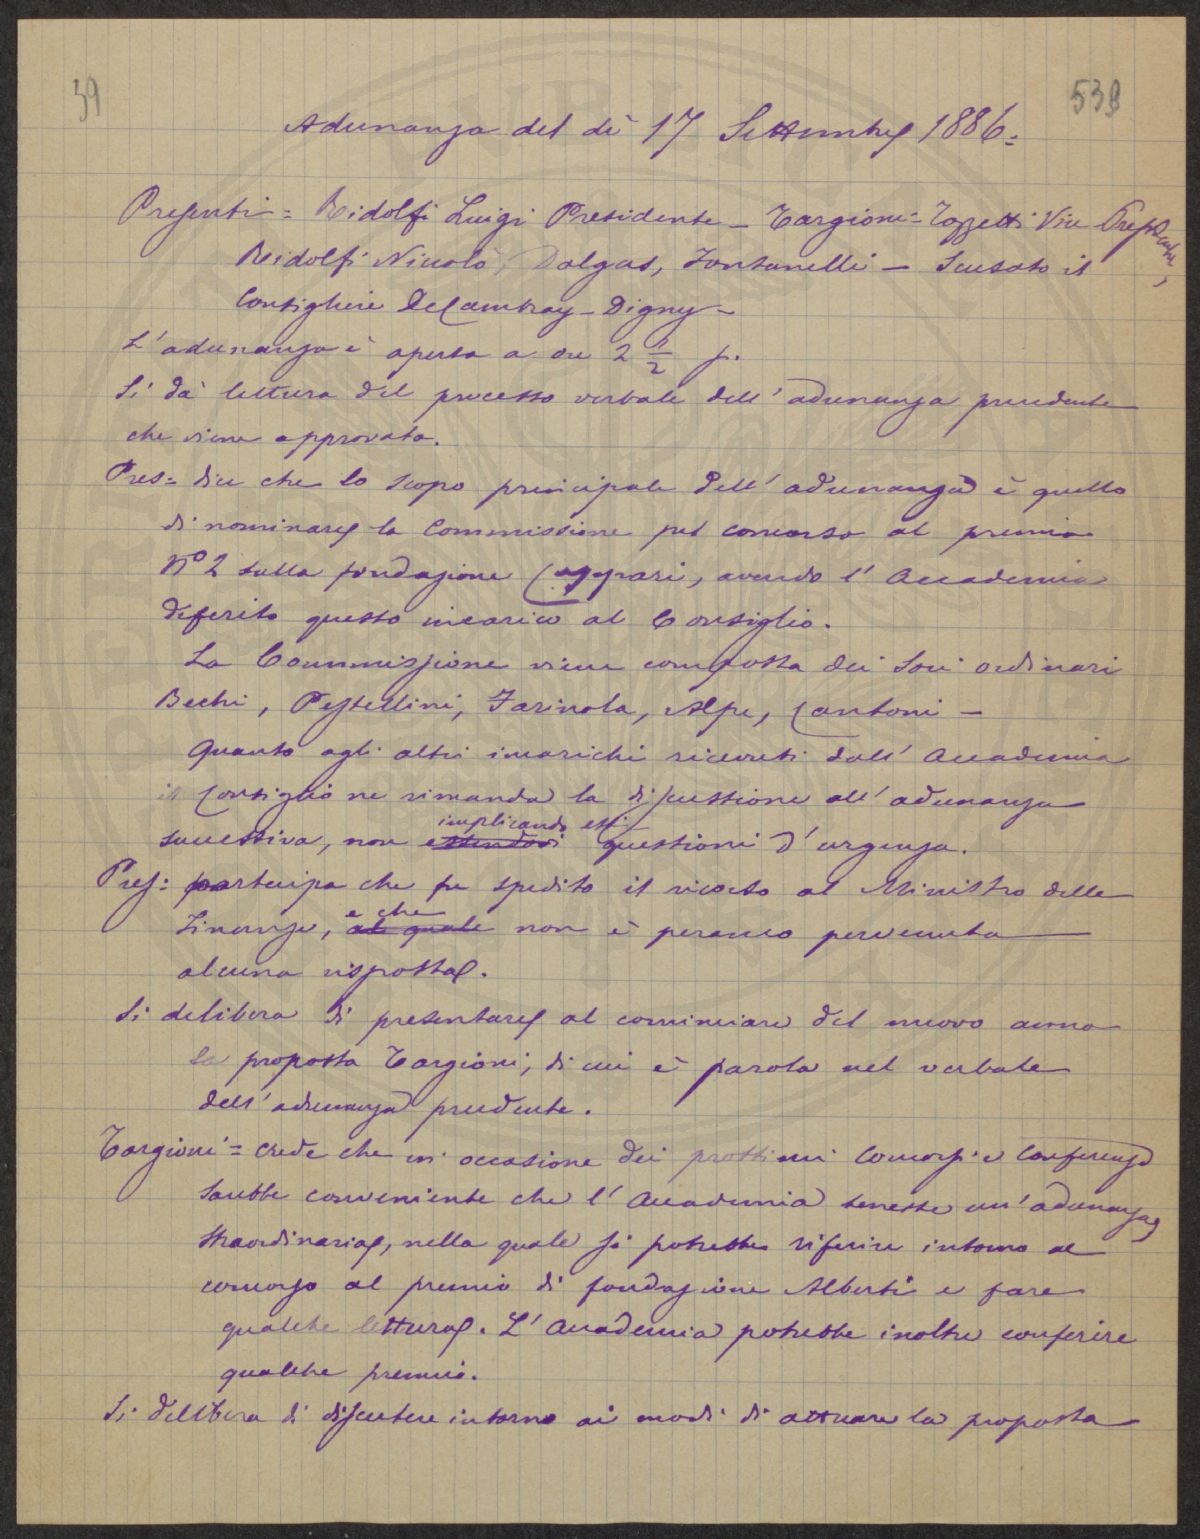 39
539
Adunanza del dì 17 Settembre 1886=
Presenti= Ridolfi Luigi Presidente — Targioni=Tozzetti Vice Presidente,
Ridolfi Niccolò, Dalgas, Fontanelli — Scusato il
Consigliere DeCambray-Digny—
L'adunanza è aperta a ore 2 1/2 p.
Si dà lettura del processo verbale dell'adunanza precedente
che viene approvato.
Pres= dice che lo scopo principale dell'adunanza è quello
di nominare la Commissione pel concorso al premio
N° 2 sulla fondazione Cuppari, avendo l'Accademia
deferito questo incarico al Consiglio.
La Commissione viene composta dei Soci ordinari
Bechi, Pestellini, Farinola, Alpe, Cantoni—
Quanto agli altri incarichi ricevuti dall'Accademia
il Consiglio ne rimanda la discussione all'adunanza
implicando essi
successiva, non essendovi questioni d'urgenza.
Pres: partecipa che fu spedito il ricorso al Ministro delle
e che
Finanze, al quale non è peranco pervenuta
alcuna risposta.
Si delibera di presentare al cominciare del nuovo anno
la proposta Targioni, di cui è parola nel verbale
dell'adunanza precedente.
Targioni= crede che in occasione dei prossimi Concorsi e Conferenze
sarebbe conveniente che l'Accademia tenesse un'adunanza
straordinaria, nella quale si potrebbe riferire intorno al
concorso al premio di fondazione Alberti e fare
qualche lettura. L'Accademia potrebbe inoltre conferire
qualche premio.
Si delibera di discutere intorno ai modi di attuare la proposta